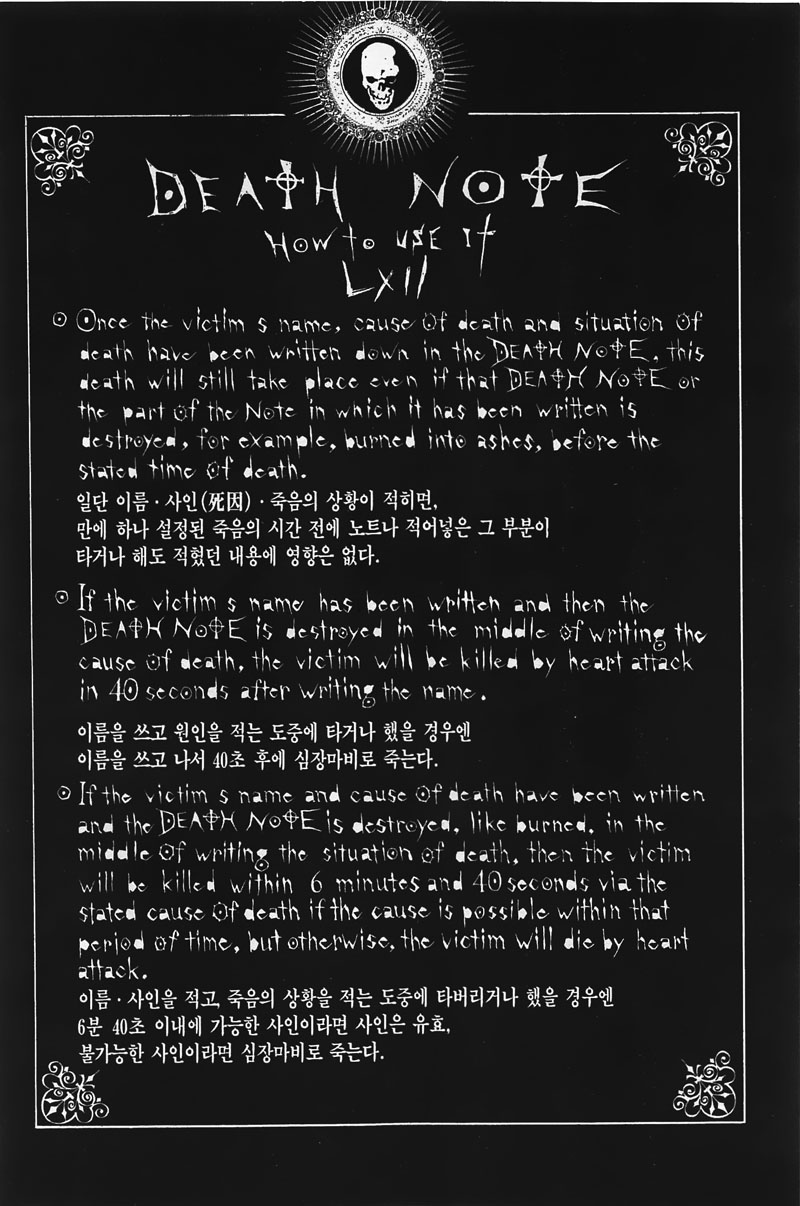 DEATH NOTE
HOW to USE It
LXII
Once the victim s name, cause of death and situation of
death have been written down in the DEATH NOTE, this
death will still take place even if that DEATH NOTE or
the part of the Note in which it has been written is
destroyed, for example, burned into ashes, before the
stated time of death.
일단 이름·사인(死因)·죽음의 상황이 적히면,
만에 하나 설정된 죽음의 시간 전에 노트나 적어넣은 그 부분이
타거나 해도 적혔던 내용에 영향은 없다.
If the victim s name has been written and then the
DEATH NOTE is destroyed in the middle of writing the
cause of death, the victim will be killed by heart attack
in 40 seconds after writing the name.
이름을 쓰고 원인을 적는 도중에 타거나 했을 경우엔
이름을 쓰고 나서 40초 후에 심장마비로 죽는다.
If the victim s name and cause of death have been written
and the DEATH NOTE is destroyed, like burned, in the
middle of writing the situation of death, then the victim
will be killed within 6 minutes and 40 seconds via the
stated cause of death if the cause is possible within that
period of time, but otherwise, the victim will die by heart
attack.
이름·사인을 적고, 죽음의 상황을 적는 도중에 타버리거나 했을 경우엔
6분 40초 이내에 가능한 사인이라면 사인은 유효,
불가능한 사인이라면 심장마비로 죽는다.